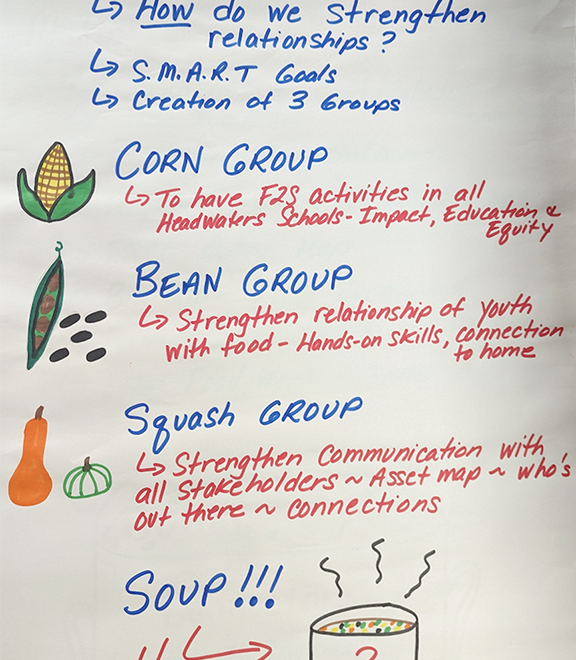 ↳ How do we strengthen
relationships?
↳ S.M.A.R.T Goals
↳ Creation of 3 Groups
CORN GROUP
↳ To have F2S activities in all
Headwaters Schools - Impact, Education &
Equity
BEAN GROUP
↳ Strengthen relationship of youth
with food - Hands-on skills, connection
to home
Squash GROUP
↳ Strengthen Communication with
all Stakeholders ~ Asset map ~ who's
out there ~ connections
SOUP!!!
?